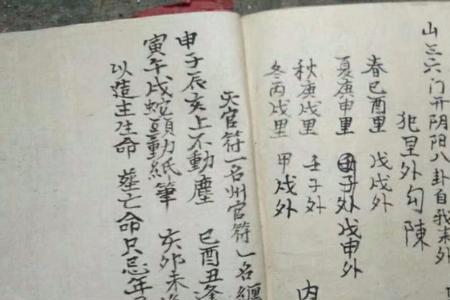 山三六门开阴阳八卦自我来外
犯星外勾陳
春巳酉里 戊戌外
夏庚申里 子外戊申外
秋庚戌里 壬子外
冬丙戌里 甲戌外
内
天官符一名州官符一名纏
申子辰亥上不動塵 巳酉丑逢
寅午戌蛇頭動紙筆 亥卯未
以造主生命 葬亡命只忌年